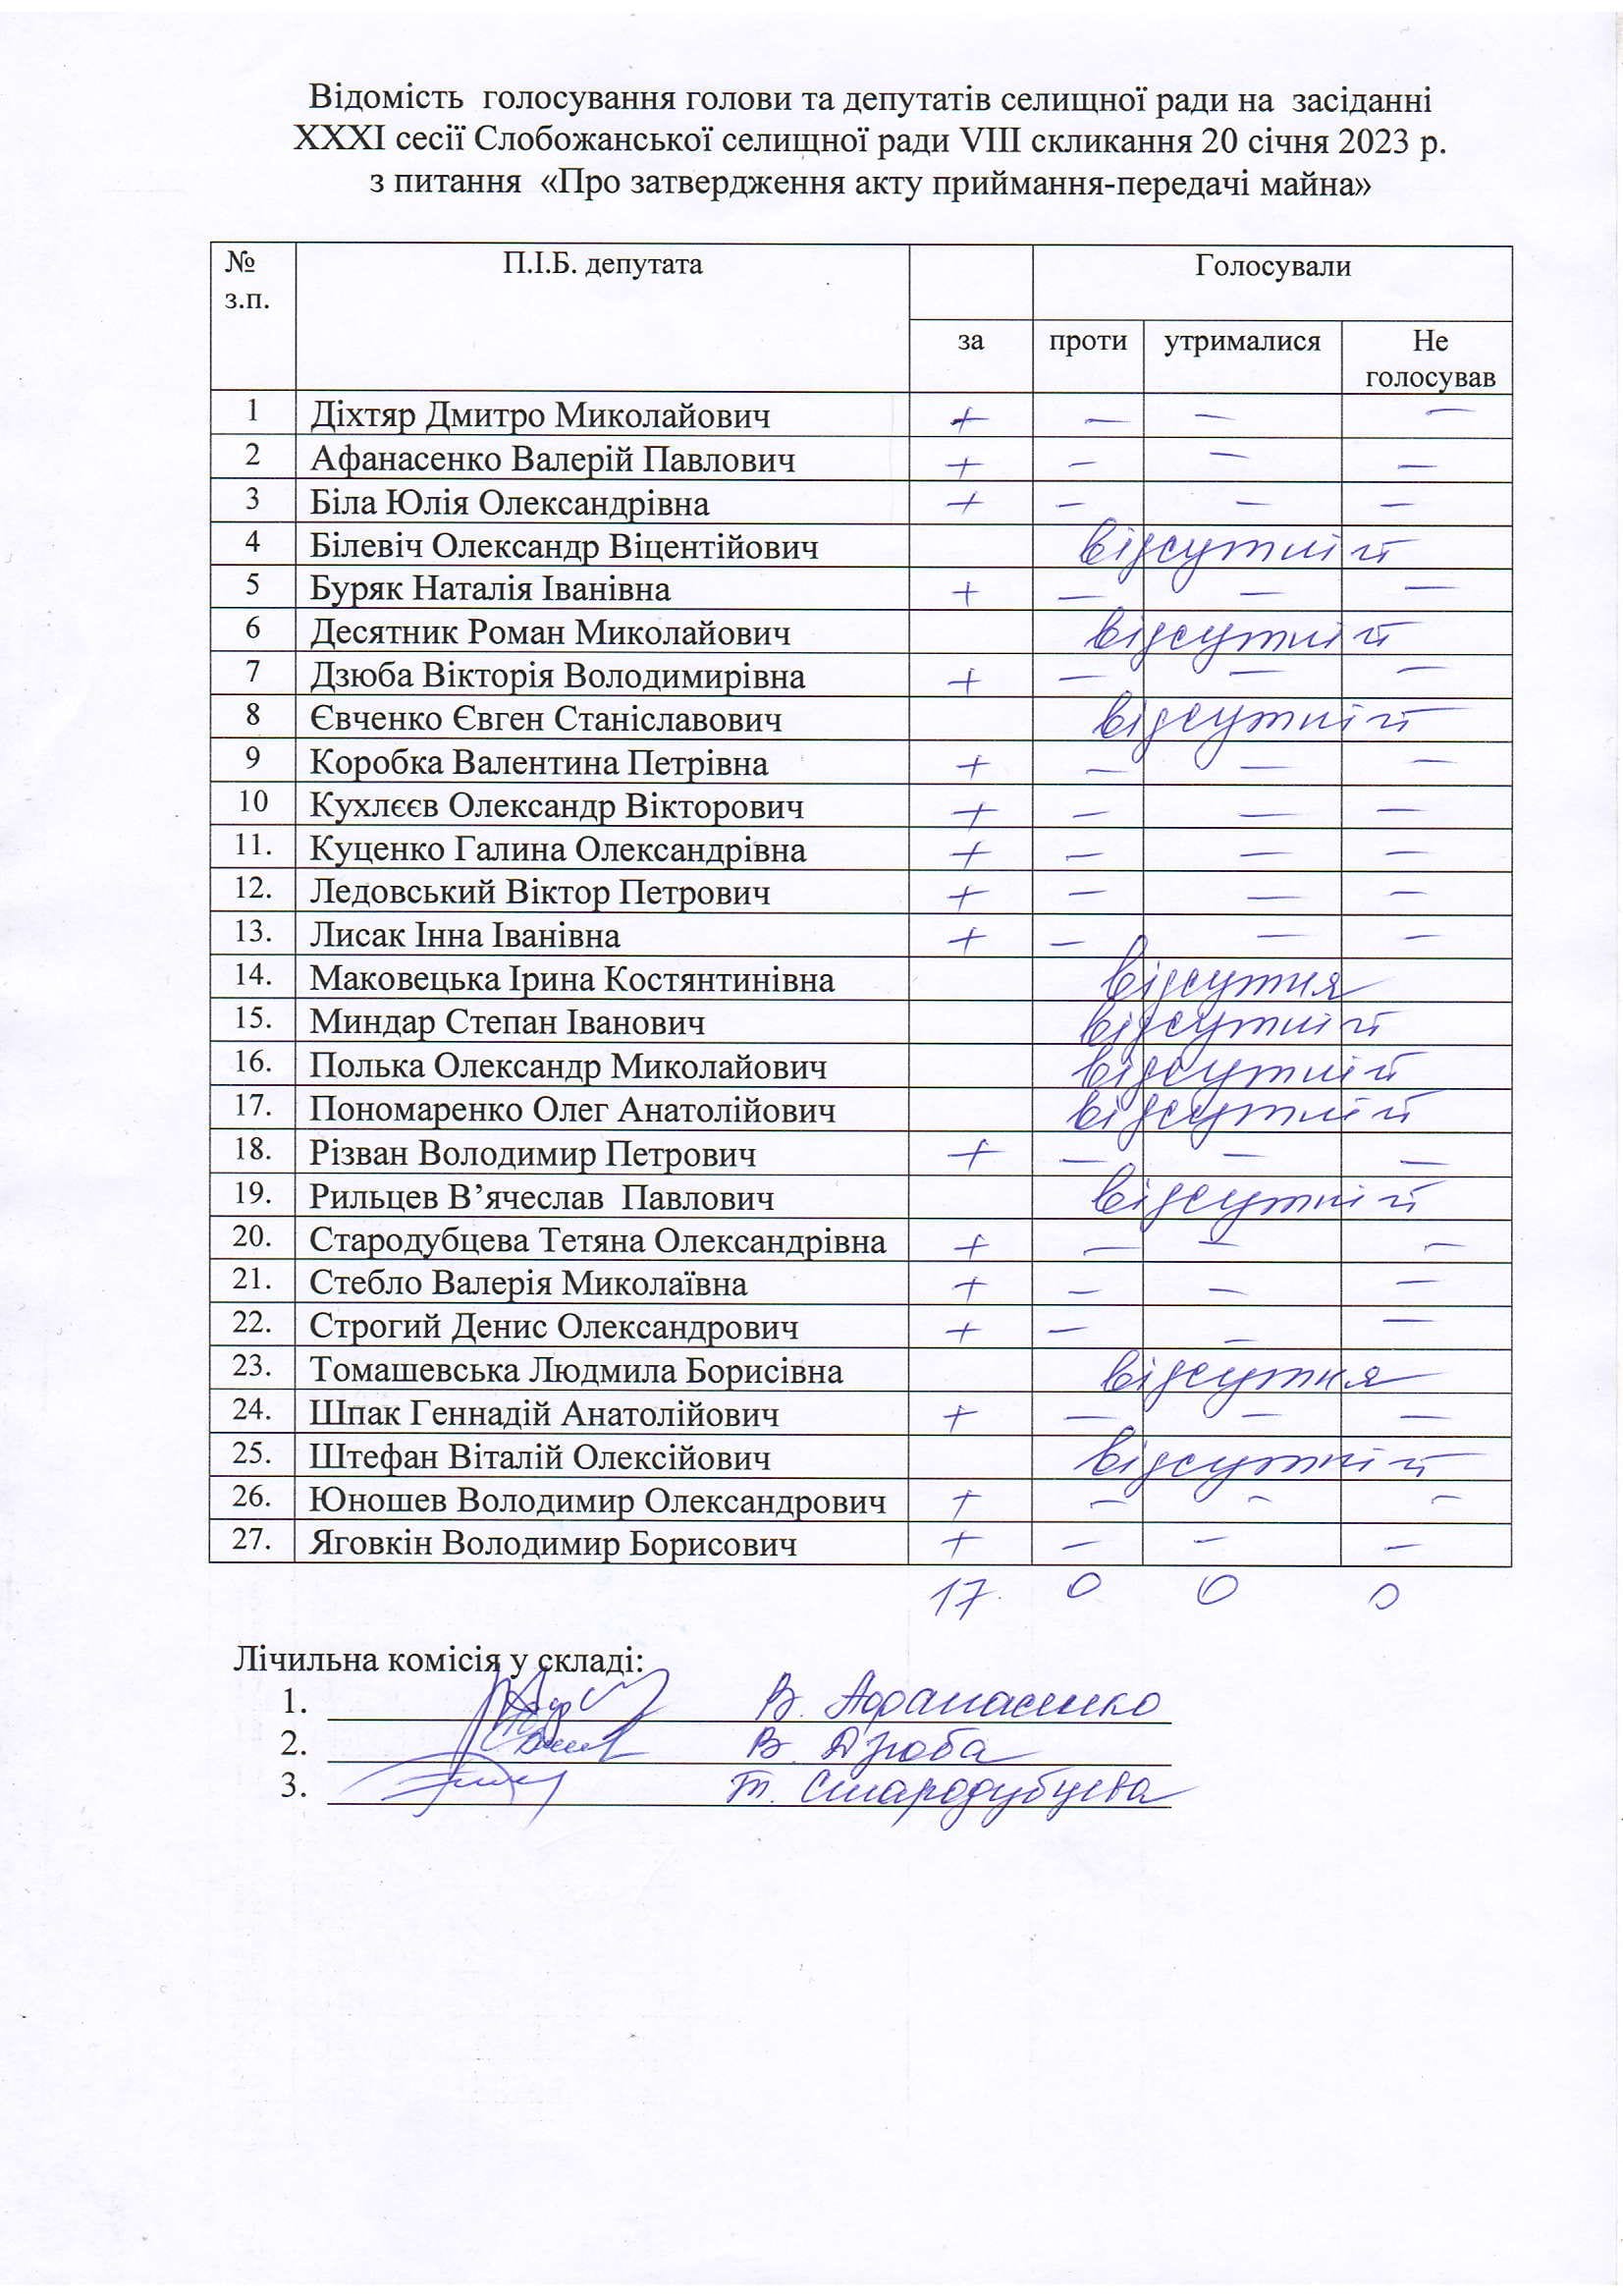 Відомість голосування голови та депутатів селищної ради на засіданні
XXXI сесії Слобожанської селищної ради VIII скликання 20 січня 2023 р.
з питання «Про затвердження акту приймання-передачі майна»
№ з.п. П.І.Б. депутата Голосували
за проти утрималися Не голосував
1 Діхтяр Дмитро Миколайович + — — —
2 Афанасенко Валерій Павлович + — — —
3 Біла Юлія Олександрівна + — — —
4 Білевіч Олександр Віцентійович відсутній
5 Буряк Наталія Іванівна + — — —
6 Десятник Роман Миколайович відсутній
7 Дзюба Вікторія Володимирівна + — — —
8 Євченко Євген Станіславович відсутній
9 Коробка Валентина Петрівна + — — —
10 Кухлєєв Олександр Вікторович + — — —
11. Куценко Галина Олександрівна + — — —
12. Ледовський Віктор Петрович + — — —
13. Лисак Інна Іванівна + — — —
14. Маковецька Ірина Костянтинівна відсутня
15. Миндар Степан Іванович відсутній
16. Полька Олександр Миколайович відсутній
17. Пономаренко Олег Анатолійович відсутній
18. Різван Володимир Петрович + — — —
19. Рильцев В’ячеслав Павлович відсутній
20. Стародубцева Тетяна Олександрівна + — — —
21. Стебло Валерія Миколаївна + — — —
22. Строгий Денис Олександрович + — — —
23. Томашевська Людмила Борисівна відсутня
24. Шпак Геннадій Анатолійович + — — —
25. Штефан Віталій Олексійович відсутній
26. Юношев Володимир Олександрович + — — —
27. Яговкін Володимир Борисович + — — —
17. 0 0 0
Лічильна комісія у складі:
1. В. Афанасенко
2. В. Дзюба
3. Т. Стародубцева